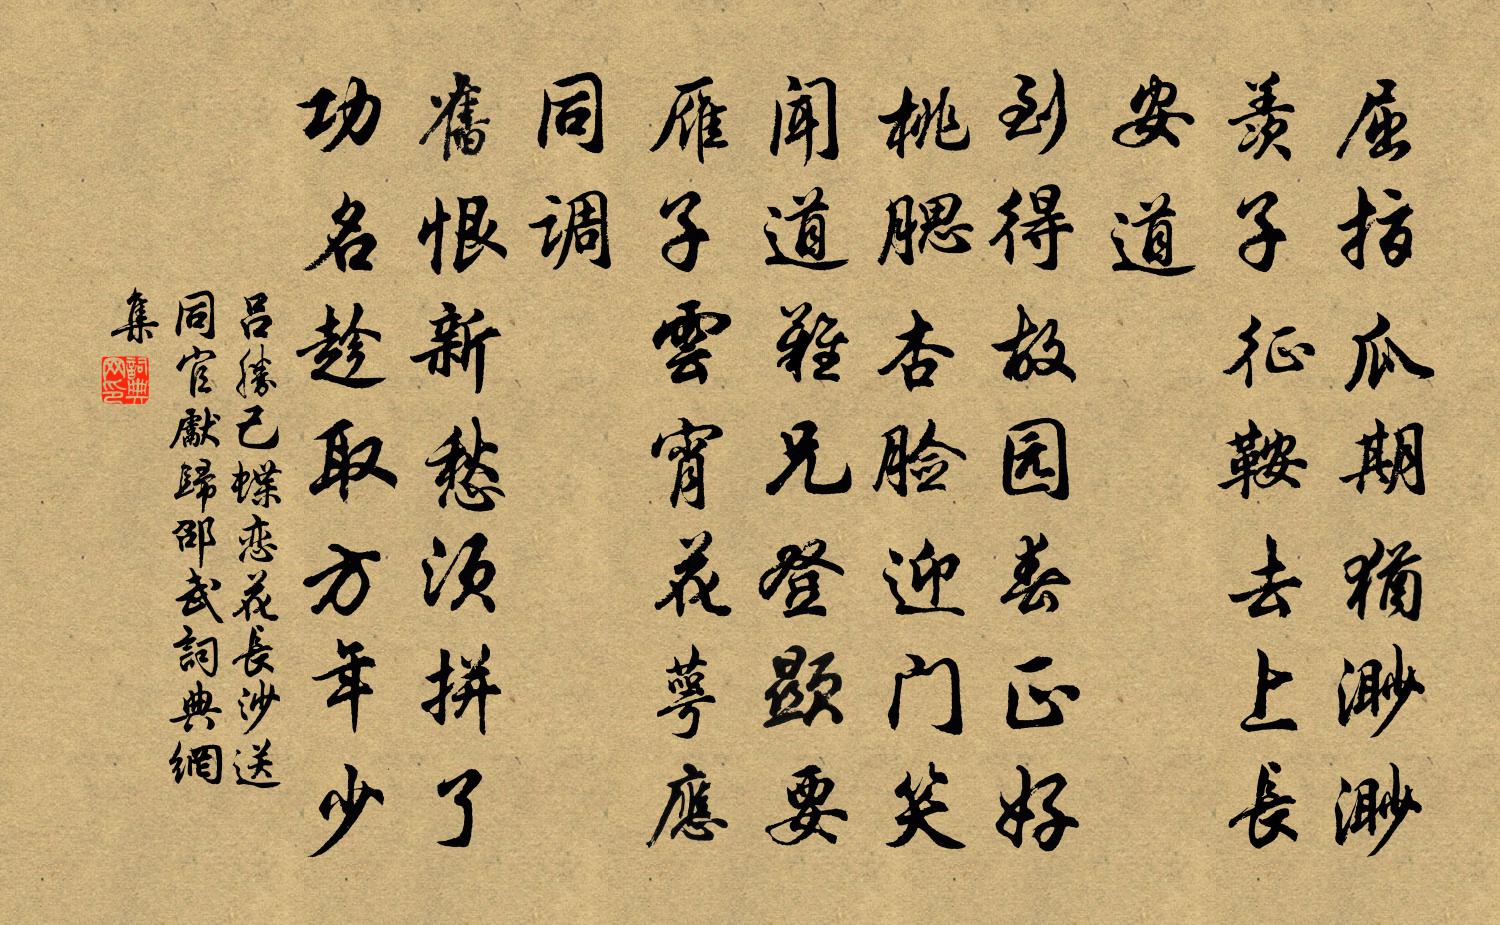 屈指瓜期犹渺渺
羡子征鞍去上長
安道
到得故园春正好
桃腮杏脸迎门笑
闻道難兄登顕要
雁子雲宵花萼應
同调
舊恨新愁须拼了
功名趁取方年少
呂勝己蝶恋花長沙送
同官獻歸邵武詞典網
集
詞典网印